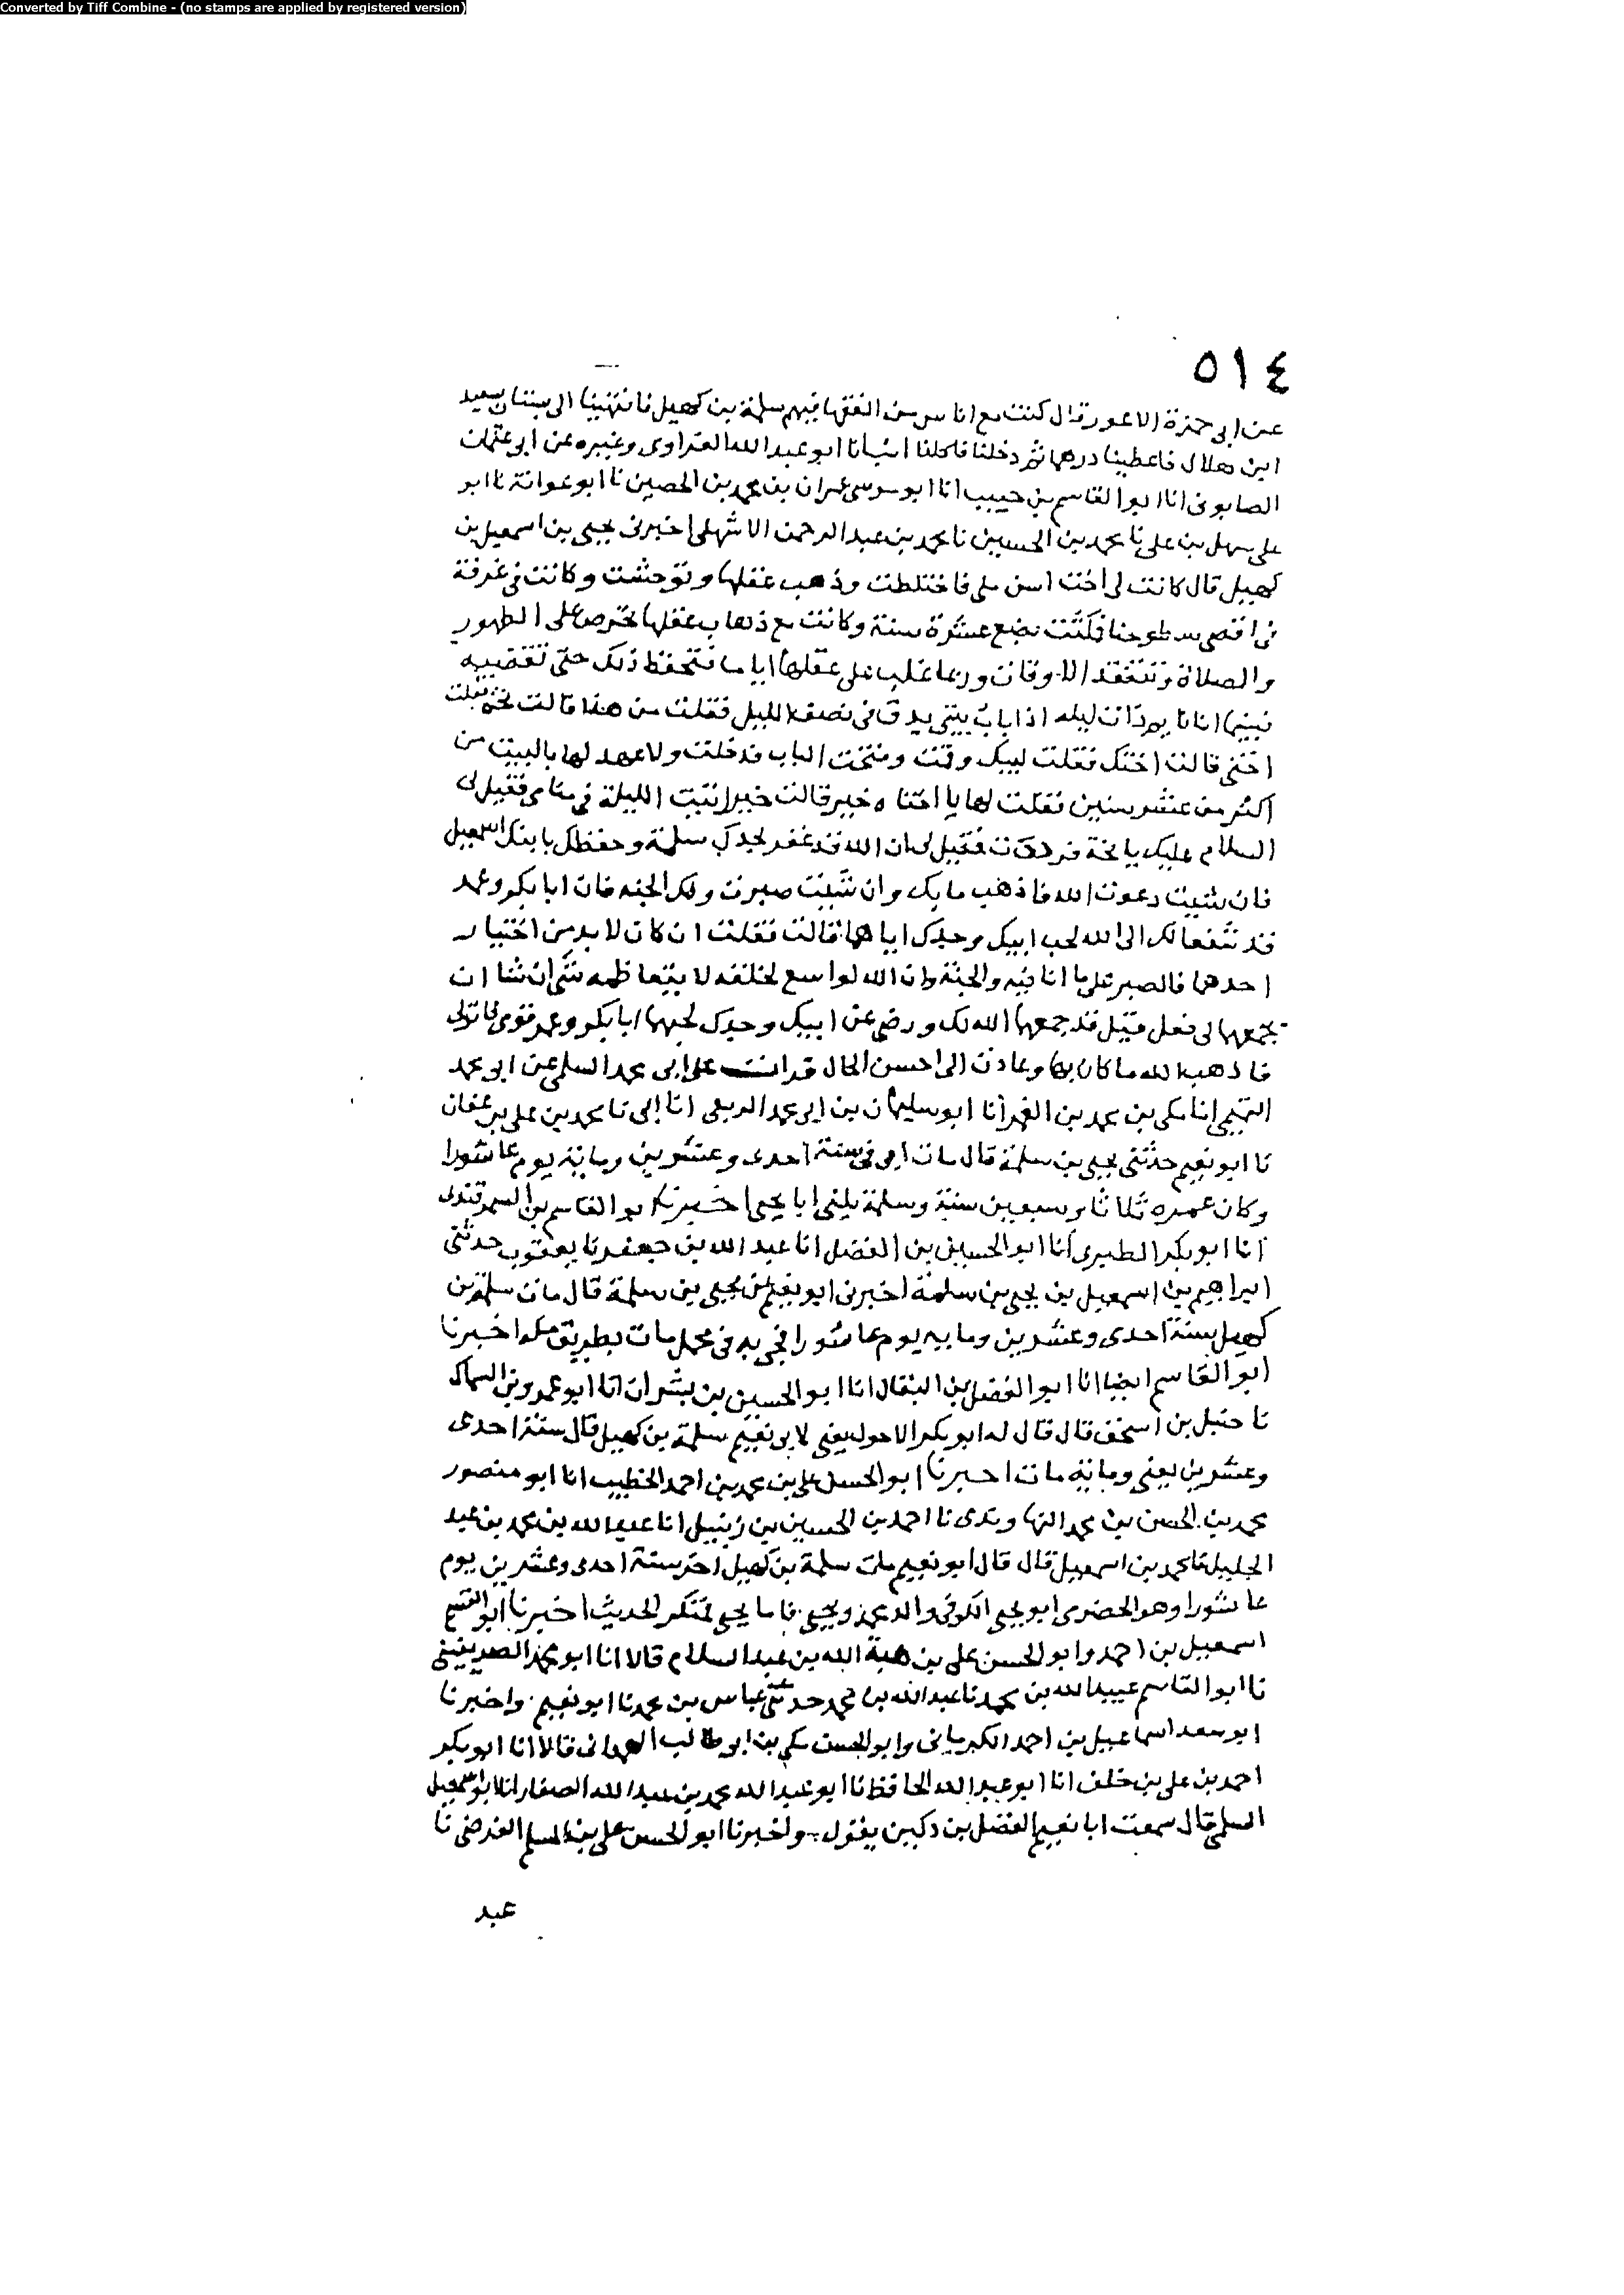 Converted by Tiff Combine - (no stamps are applied by registered version)
٥١٤
عن ابى حمزة الاعور قال كنت مع اناس من الفقها فيهم سلمة بن كهيل فانتهينا الى بستان سعيد
ابن هلال فاعطينا درهما ثم دخلنا فاكلنا انبانا ابو عبد الله الفراوى وغيره عن ابى عثمان
الصابونى انا ابو القاسم بن حبيب انا ابو موسى عمران بن محمد بن الحصين نا ابو عوانة نا ابو
على سهل بن على نا محمد بن الحسين نا محمد بن عبد الرحمن الاشهلى اخبرنى يحيى بن اسمعيل بن
كهيل قال كانت لى اخت اسن منى فاختلطت وذهب عقلها وتوحشت وكانت فى غرفة
فى اقصى سطوحنا فمكثت بضع عشرة سنة وكانت مع ذهاب عقلها تحرص على الطهور
والصلاة وتتفقد الاوقات وربما غلب على عقلها اياما فتحفظ ذلك حتى تقضيه
فبينما انا نايم ذات ليلة اذا باب بيتى يدق فى نصف الليل فقلت من هذا قالت بخة فقلت
اختى قالت اختك فقلت لبيك وقمت وفتحت الباب فدخلت ولا عهد لها بالبيت من
اكثر من عشر سنين فقلت لها يا اختاه خير قالت خير اتيت الليلة فى منامى فقيل لى
السلام عليك يا بخة فرددت فقيل لى ان الله قد غفر لجدك سلمة وحفظك بابيك اسمعيل
فان شيت دعوت الله فاذهب ما بك وان شيت صبرت ولك الجنه فان ابا بكر وعمر
قد شفعا لك الى الله لحب ابيك وجدك اياهما قالت فقلت ان كان لا بد من اختيار
احدهما فالصبر على ما انا فيه والجنة وان الله لواسع لخلقه لا يتعاظمه شى ان شا ان
يجمعهما لى فعل فقيل قد جمعهما الله لك ورضى عن ابيك وجدك لحبهما ابا بكر وعمر قومى فانزلى
فاذهب الله ما كان بها وعادت الى احسن الحال قرات على ابى محمد السلمى عن ابى محمد
التميمى انا مكى بن محمد بن الغمر انا ابو سليمان بن ابى محمد الربعى انا ابى نا محمد بن على بن عفان
نا ابو نعيم حدثنى يحيى بن سلمة قال مات ابى فى سنة احدى وعشرين وماية يوم عاشورا
وكان عمره ثلاثا وسبعين سنة وسلمة يكنى ابا يحيى اخبرنا ابو القاسم بن السمرقندى
انا ابو بكر الطبرى انا ابو الحسين بن الفضل انا عبد الله بن جعفر نا يعقوب حدثنى
ابراهيم بن اسمعيل بن يحيى بن سلمة اخبرنى ابو نعيم عن يحيى بن سلمة قال مات سلمة بن
كهيل سنة احدى وعشرين وماية يوم عاشورا فجى به فى محمل مات بطريق مكة اخبرنا
ابو القاسم ايضا انا ابو الفضل بن البقال انا ابو الحسين بن بشران انا ابو عمرو بن السماك
نا حنبل بن اسحق قال قال له ابو بكر الاحول يعنى لابى نعيم سلمة بن كهيل قال سنة احدى
وعشرين يعنى وماية مات اخبرنا ابو الحسن على بن محمد بن احمد الخطيب انا ابو منصور
محمد بن الحسن بن محمد النهاوندى نا احمد بن الحسين بن زنبيل انا عبد الله بن محمد بن عبد
الجليل نا محمد بن اسمعيل قال قال ابو نعيم مات سلمة بن كهيل اخر سنة احدى وعشرين يوم
عاشورا وهو الحضرمى ابو يحيى الكوفى والد محمد ويحيى فاما يحيى فمنكر الحديث اخبرنا ابو القسم
اسمعيل بن احمد وابو الحسن على بن هبة الله بن عبد السلام قالا انا ابو محمد الصريفينى
نا ابو القاسم عبيد الله بن محمد نا عبد الله بن محمد حدثنى عباس بن محمد نا ابو نعيم واخبرنا
ابو سعد اسماعيل بن احمد الكرمانى وابو الحسن مكى بن ابو طالب الهمدانى قالا انا ابو بكر
احمد بن على بن خلف انا ابو عبد الله الحافظ نا ابو عبد الله محمد بن عبد الله الصفار نا ابو اسمعيل
السلمى قال سمعت ابا نعيم الفضل بن دكين يقول واخبرنا ابو الحسن على بن المسلم الفرضى نا
عبد